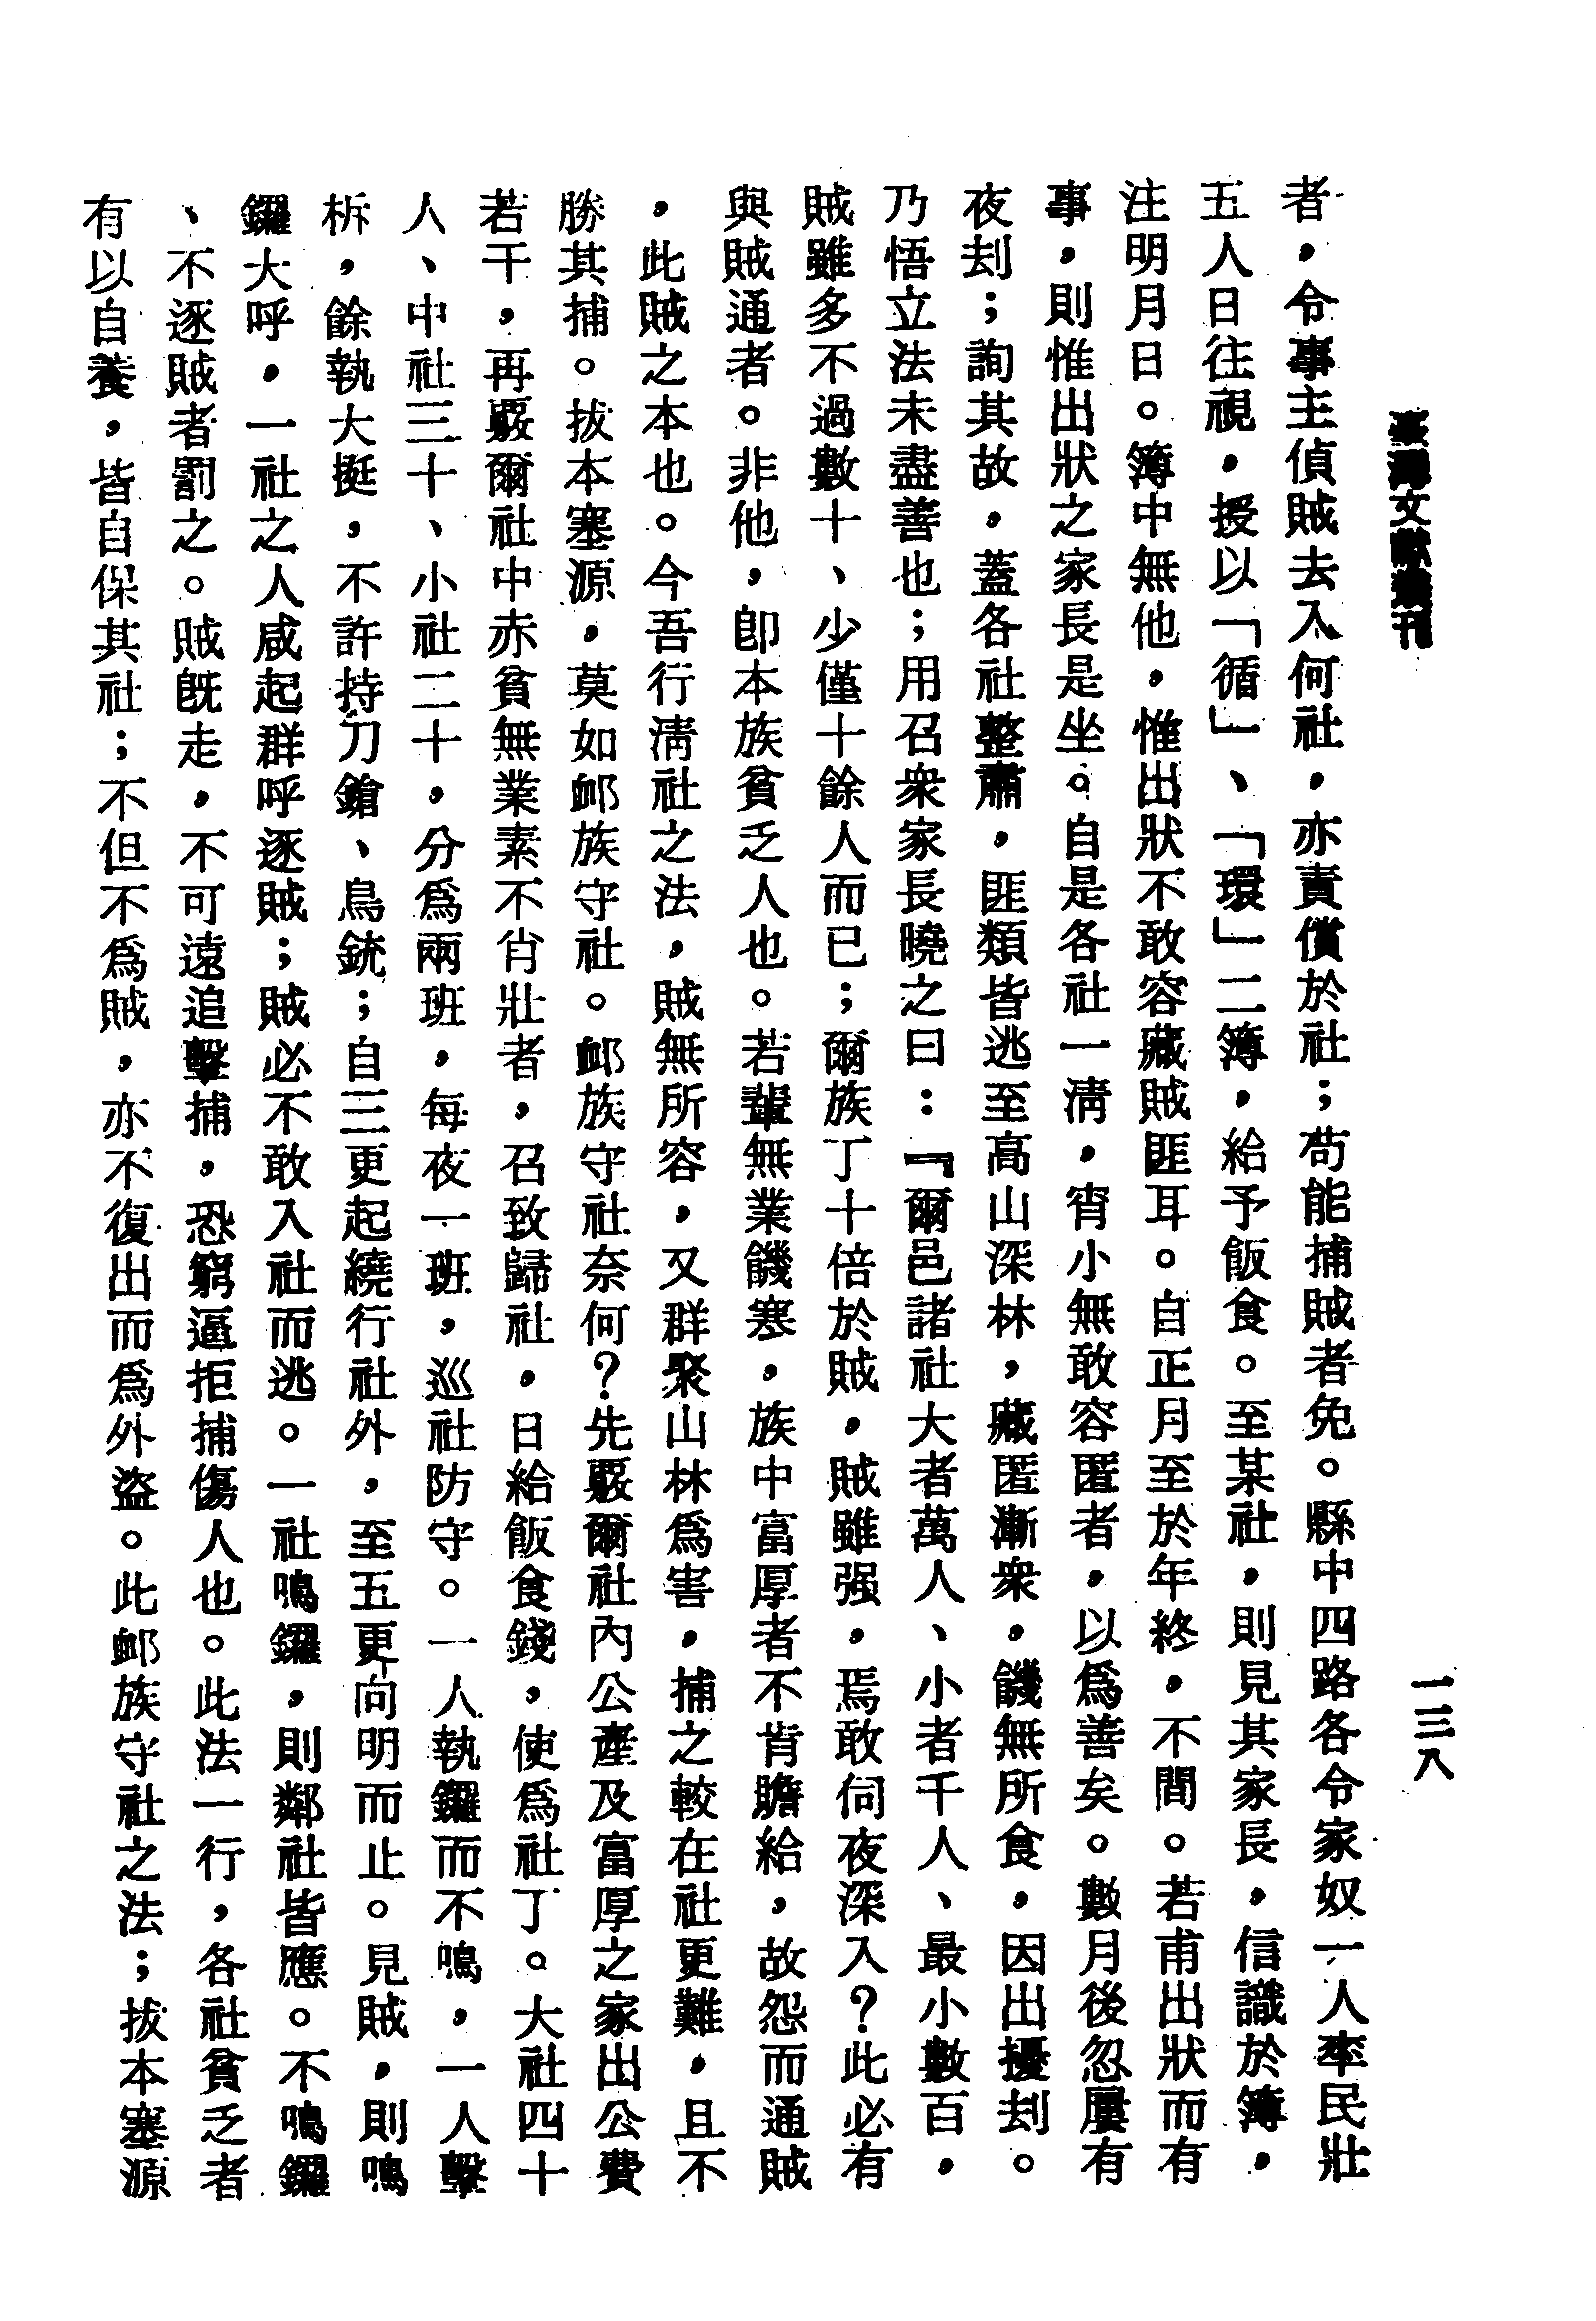 臺灣文獻叢刊
一三八
者，令事主偵賊去入何社，亦責償於社；苟能捕賊者免。縣中四路各令家奴一人率民壯
五人日往視，授以「循」、「環」二簿，給予飯食。至某社，則見其家長，信識於簿，
注明月日。簿中無他，惟出狀不敢容藏賊匪耳。自正月至於年終，不間。若甫出狀而有
事，則惟出狀之家長是坐。自是各社一清，宵小無敢容匿者，以爲善矣。數月後忽屢有
夜刦；詢其故，蓋各社整肅，匪類皆逃至高山深林，藏匿漸衆，饑無所食，因出擾刦。
乃悟立法未盡善也；用召衆家長曉之曰：『爾邑諸社大者萬人、小者千人、最小數百，
賊雖多不過數十、少僅十餘人而已；爾族丁十倍於賊，賊雖强，焉敢伺夜深入？此必有
與賊通者。非他，卽本族貧乏人也。若輩無業饑寒，族中富厚者不肯贍給，故怨而通賊
，此賊之本也。今吾行淸社之法，賊無所容，又群聚山林爲害，捕之較在社更難，且不
勝其捕。拔本塞源，莫如卹族守社。卹族守社奈何？先覈爾社內公產及富厚之家出公費
若干，再覈爾社中赤貧無業素不肖壯者，召致歸社，日給飯食錢，使爲社丁。大社四十
人、中社三十、小社二十，分爲兩班，每夜一班，巡社防守。一人執鑼而不鳴，一人擊
柝，餘執大挺，不許持刀鎗、鳥銃；自三更起繞行社外，至五更向明而止。見賊，則鳴
鑼大呼，一社之人咸起群呼逐賊；賊必不敢入社而逃。一社鳴鑼，則鄰社皆應。不鳴鑼
、不逐賊者罰之。賊旣走，不可遠追擊捕，恐窮逼拒捕傷人也。此法一行，各社貧乏者
有以自養，皆自保其社；不但不爲賊，亦不復出而爲外盜。此卹族守社之法；拔本塞源